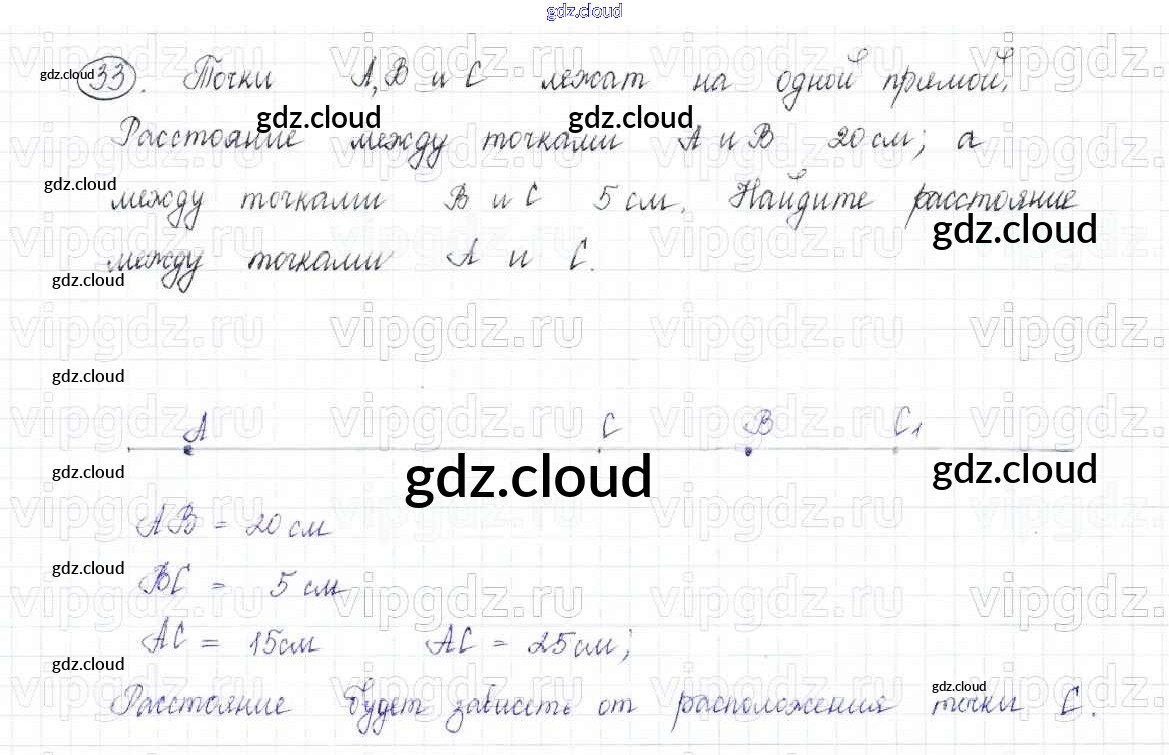 gdz.cloud
gdz.cloud 33. Точки А, В и С лежат на одной прямой.
gdz.cloud gdz.cloud
Расстояние между точками А и В 20 см; а
gdz.cloud
между точками В и С 5 см. Найдите расстояние
gdz.cloud
между точками А и С.
gdz.cloud
vipgdz.ru vipgdz.ru vipgdz.ru vipgdz.
gdz.cloud
А С В С1
gdz.cloud gdz.cloud gdz.cloud
АВ = 20 см
gdz.cloud
ВС = 5 см
АС = 15 см АС = 25 см;
gdz.cloud gdz.cloud
Расстояние будет зависеть от расположения точки С.